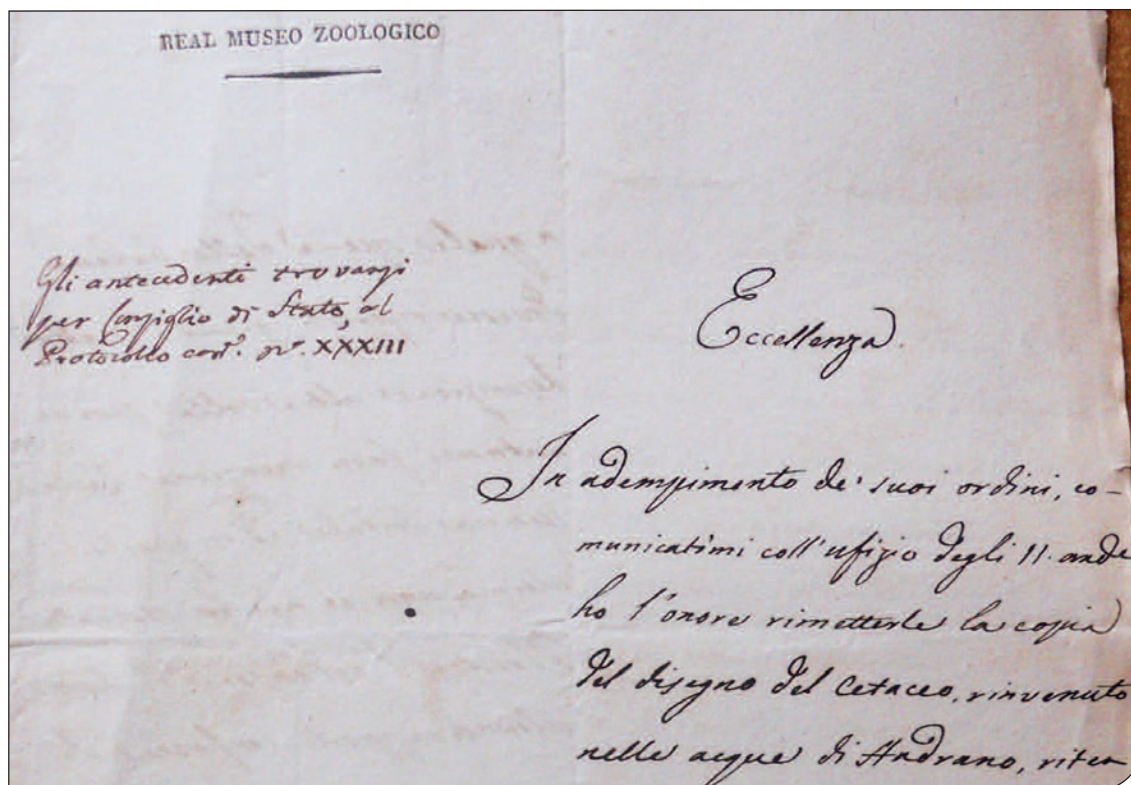 REAL MUSEO ZOOLOGICO
Gli antecedenti trovansi
per Consiglio di Stato, al
Protocollo cont.º nº. XXXIII
Eccellenza.
In adempimento de' suoi ordini, co-
municatimi coll'ufizio degli 11. ande
ho l'onore rimetterle la copia
del disegno del Cetaceo, rinvenuto
nelle acque di Andrano, riten-